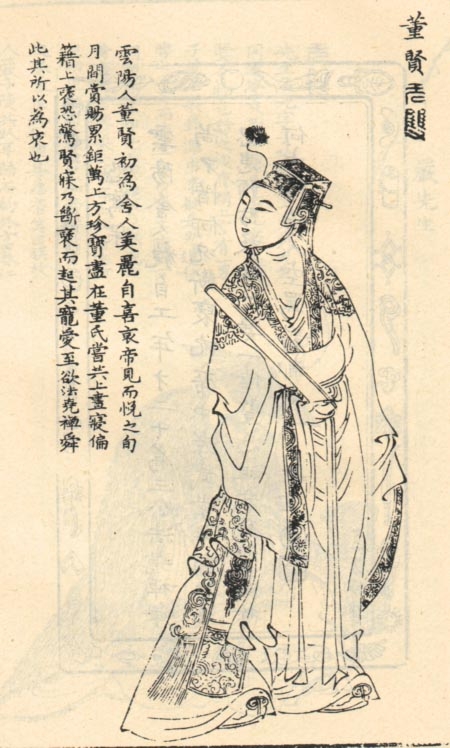 董賢无雙
雲陽人董賢初為舍人美麗自喜哀帝見而悅之旬
月間賞賜累鉅萬上方珍寶盡在董氏當共上晝寢偏
籍上褎恐驚賢寐乃斷褎而起其寵愛至欲法堯禪舜
此其所以為哀也